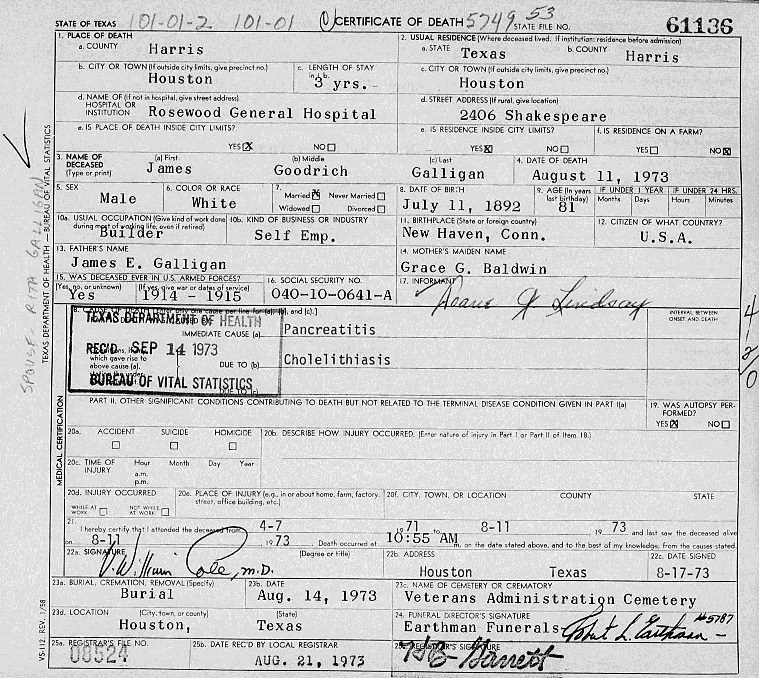 STATE OF TEXAS 101-01-2 101-01 CERTIFICATE OF DEATH 5749 53 STATE FILE NO. 61136
1. PLACE OF DEATH
a. COUNTY Harris
2. USUAL RESIDENCE (Where deceased lived. If institution: residence before admission)
a. STATE Texas b. COUNTY Harris
b. CITY OR TOWN (If outside city limits, give precinct no.) Houston
c. LENGTH OF STAY in 1b. 3 yrs.
c. CITY OR TOWN (If outside city limits, give precinct no.) Houston
d. NAME OF (If not in hospital, give street address) HOSPITAL OR INSTITUTION Rosewood General Hospital
d. STREET ADDRESS (If rural, give location) 2406 Shakespeare
e. IS PLACE OF DEATH INSIDE CITY LIMITS? YES X NO
e. IS RESIDENCE INSIDE CITY LIMITS? YES X NO
f. IS RESIDENCE ON A FARM? YES NO X
3. NAME OF DECEASED (Type or print) (a) First James (b) Middle Goodrich (c) Last Galligan
4. DATE OF DEATH August 11, 1973
5. SEX Male
6. COLOR OR RACE White
7. Married X Never Married Widowed Divorced
8. DATE OF BIRTH July 11, 1892
9. AGE (In years last birthday) 81
IF UNDER 1 YEAR Months Days
IF UNDER 24 HRS. Hours Minutes
10a. USUAL OCCUPATION (Give kind of work done during most of working life, even if retired) Builder
10b. KIND OF BUSINESS OR INDUSTRY Self Emp.
11. BIRTHPLACE (State or foreign country) New Haven, Conn.
12. CITIZEN OF WHAT COUNTRY? U.S.A.
13. FATHER'S NAME James E. Galligan
14. MOTHER'S MAIDEN NAME Grace G. Baldwin
15. WAS DECEASED EVER IN U.S. ARMED FORCES? (Yes, no, or unknown) Yes (If yes, give war or dates of service) 1914 - 1915
16. SOCIAL SECURITY NO. 040-10-0641-A
17. INFORMANT Lindsay
TEXAS DEPARTMENT OF HEALTH
REC'D SEP 14 1973
BUREAU OF VITAL STATISTICS
IMMEDIATE CAUSE (a) Pancreatitis
which gave rise to above cause (a). DUE TO (b) Cholelithiasis
DUE TO (c)
INTERVAL BETWEEN ONSET AND DEATH
PART II. OTHER SIGNIFICANT CONDITIONS CONTRIBUTING TO DEATH BUT NOT RELATED TO THE TERMINAL DISEASE CONDITION GIVEN IN PART I(a)
19. WAS AUTOPSY PERFORMED? YES X NO
20a. ACCIDENT SUICIDE HOMICIDE
20b. DESCRIBE HOW INJURY OCCURRED. (Enter nature of injury in Part I or Part II of Item 18.)
20c. TIME OF INJURY Hour Month Day Year a.m. p.m.
20d. INJURY OCCURRED WHILE AT WORK NOT WHILE AT WORK
20e. PLACE OF INJURY (e.g., in or about home, farm, factory, street, office building, etc.)
20f. CITY, TOWN, OR LOCATION COUNTY STATE
21. I hereby certify that I attended the deceased from 4-7 1971 8-11 1973 and last saw the deceased alive
on 8-11 1973 Death occurred at 10:55 AM m. on the date stated above, and to the best of my knowledge, from the causes stated.
22a. SIGNATURE V. William Cole, M.D. (Degree or title)
22b. ADDRESS Houston Texas
22c. DATE SIGNED 8-17-73
23a. BURIAL, CREMATION, REMOVAL (Specify) Burial
23b. DATE Aug. 14, 1973
23c. NAME OF CEMETERY OR CREMATORY Veterans Administration Cemetery
23d. LOCATION (City, town, or county) Houston, (State) Texas
24. FUNERAL DIRECTOR'S SIGNATURE Earthman Funerals Robert L. Earthman #5787
25a. REGISTRAR'S FILE NO. 08524
25b. DATE REC'D BY LOCAL REGISTRAR AUG. 21, 1973
REGISTRAR'S SIGNATURE Garrett
TEXAS DEPARTMENT OF HEALTH — BUREAU OF VITAL STATISTICS
SPOUSE RITA GALLIGAN
MEDICAL CERTIFICATION
VS-112, REV. 1/58